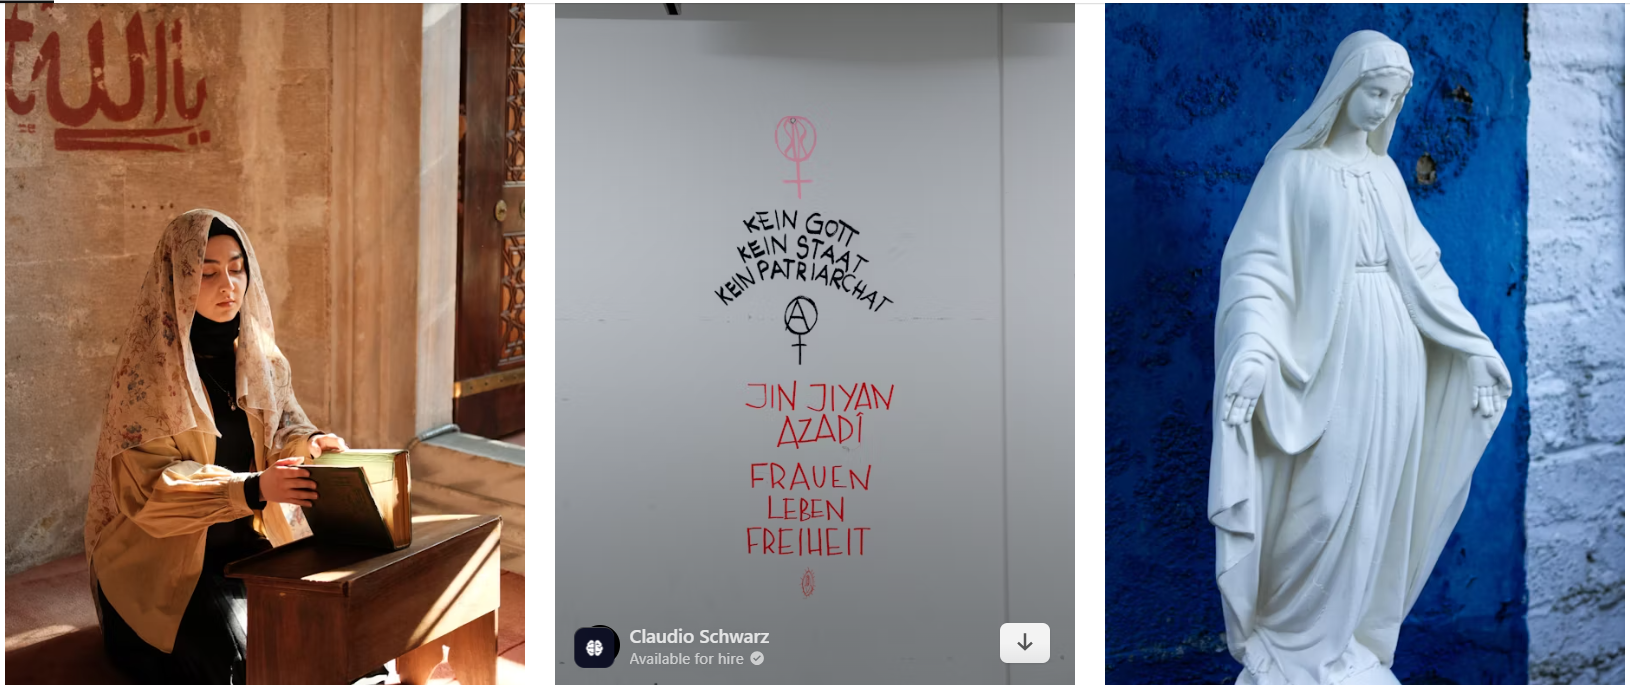 يا الله
KEIN GOTT
KEIN STAAT
KEIN PATRIARCHAT
A
JIN JIYAN
AZADÎ
FRAUEN
LEBEN
FREIHEIT
Claudio Schwarz
Available for hire